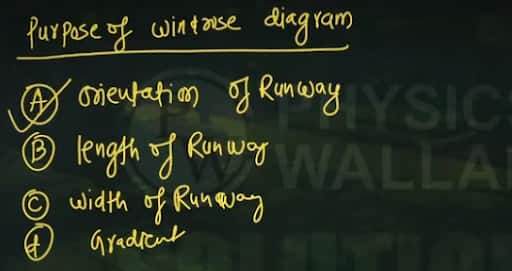 Purpose of windrose diagram
A orientation of Runway
B length of Runway
C width of Runway
d Gradient
PHYSICS
WALLAH